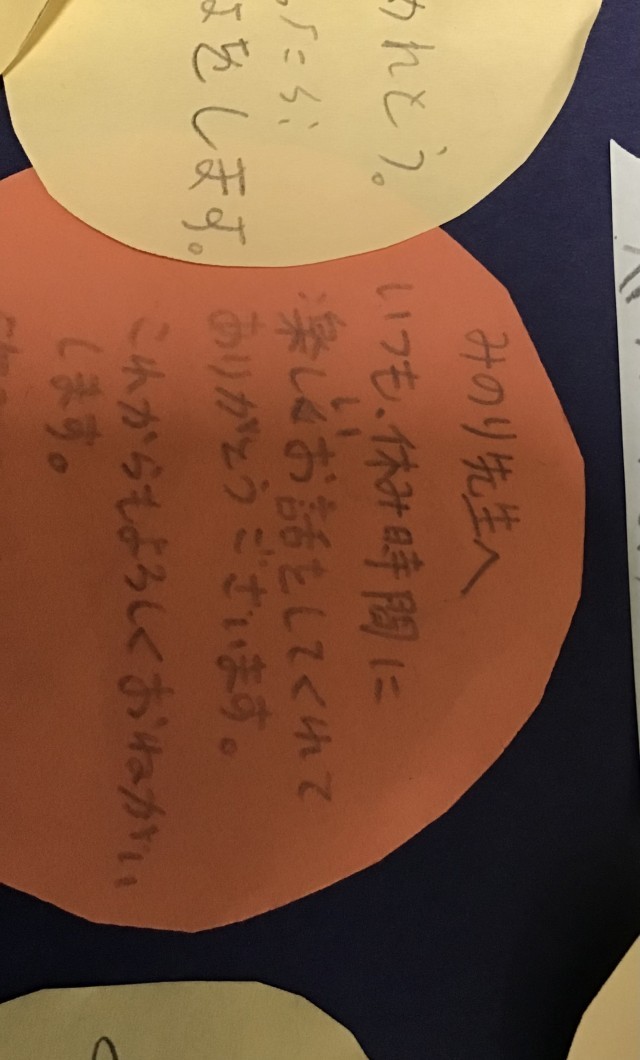 われとう。
ょをします。
みのり先生へ
いつも、休み時間に
楽しくお話をしてくれて
ありがとうございます。
これからもよろしくおねがい
します。